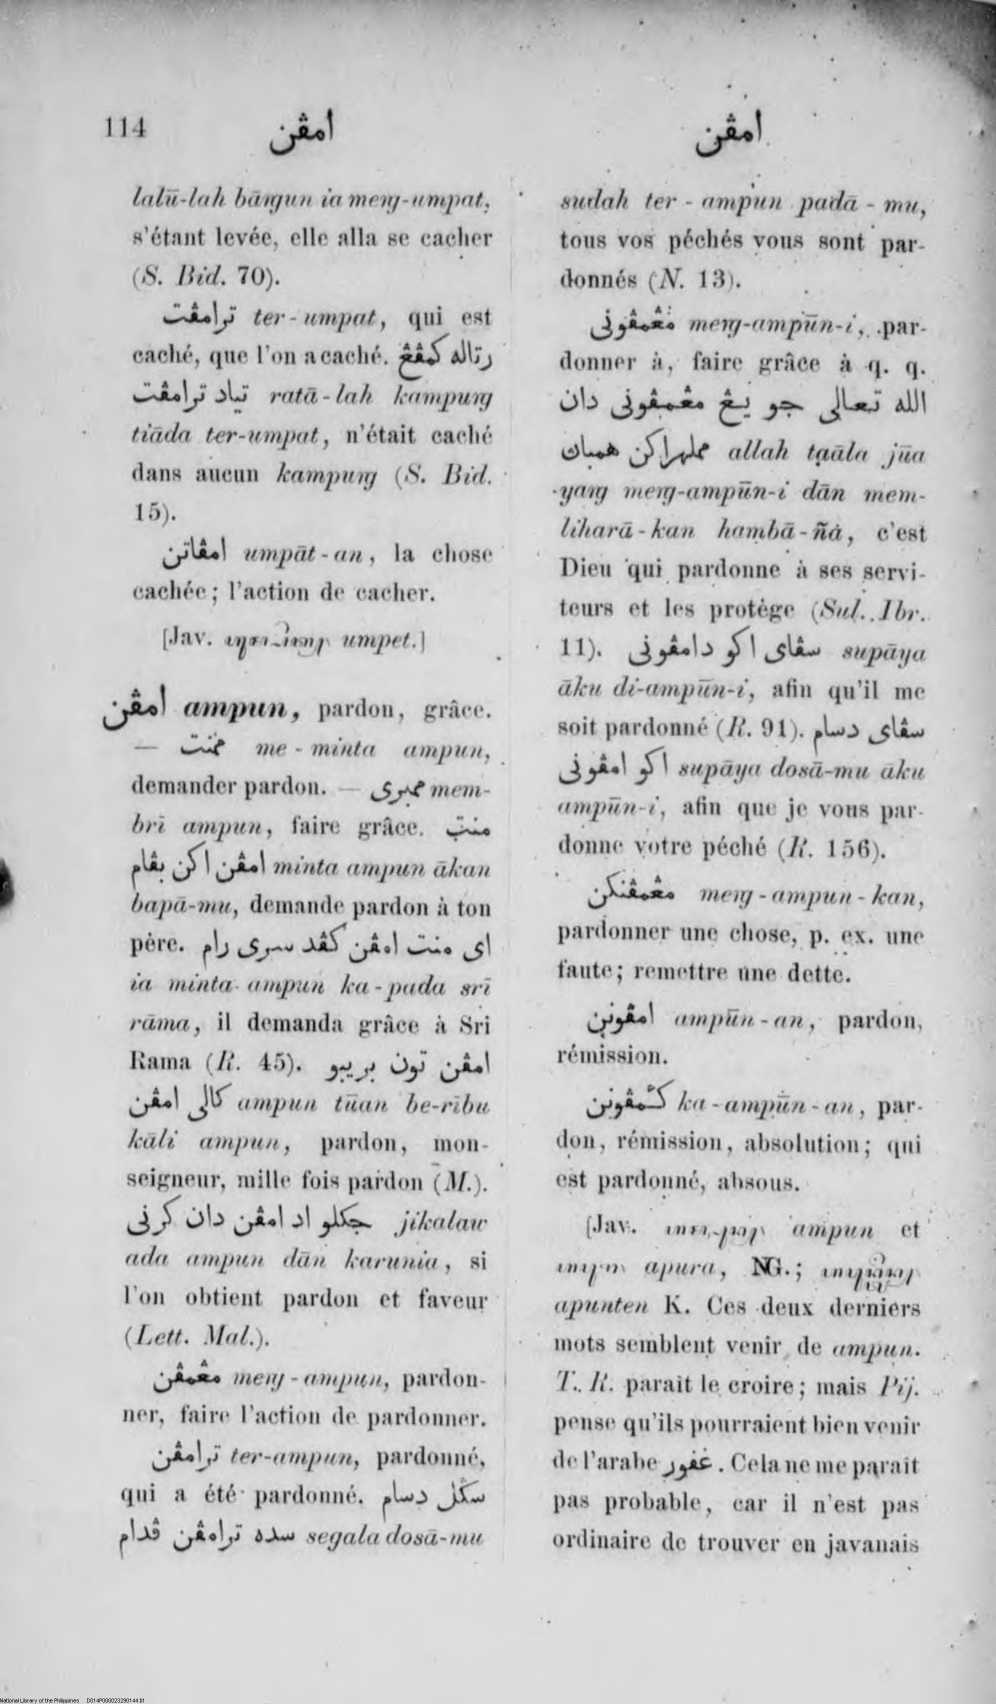 114
امڤن
امڤن
lalū-lah bāngun ia meng-umpat,
s'étant levée, elle alla se cacher
(S. Bid. 70).
ترامڤت ter-umpat, qui est
caché, que l'on a caché. رتاله كمڤڠ
تياد ترامڤت ratā-lah kampung
tiāda ter-umpat, n'était caché
dans aucun kampung (S. Bid.
15).
امڤاتن umpāt-an, la chose
cachée; l'action de cacher.
[Jav. umpet.]
امڤن ampun, pardon, grâce.
— ممنت me-minta ampun,
demander pardon. — ممبري mem-
brī ampun, faire grâce. منت
امڤن اكن بڤام minta ampun ākan
bapā-mu, demande pardon à ton
père. اى منت امڤن كڤد سرى رام
ia minta ampun ka-pada srī
rāma, il demanda grâce à Sri
Rama (R. 45). امڤن تون بريبو
كالى امڤن ampun tūan be-rību
kāli ampun, pardon, mon-
seigneur, mille fois pardon (M.).
جكلو اد امڤن دان كرنى jikalaw
ada ampun dān karunia, si
l'on obtient pardon et faveur
(Lett. Mal.).
مڠمڤن meng-ampun, pardon-
ner, faire l'action de pardonner.
ترامڤن ter-ampun, pardonné,
qui a été pardonné. سكل دسام
سده ترامڤن ڤدام segala dosā-mu
sudah ter-ampun padā-mu,
tous vos péchés vous sont par-
donnés (N. 13).
مڠمڤونى meng-ampūn-i, par-
donner à, faire grâce à q. q.
الله تعالى جو يڠ مڠمڤونى دان
مملهراكن همباث allah taāla jūa
yang meng-ampūn-i dān mem-
liharā-kan hambā-ña, c'est
Dieu qui pardonne à ses servi-
teurs et les protège (Sul. Ibr.
11). سڤاى اكو دامڤونى supāya
āku di-ampūn-i, afin qu'il me
soit pardonné (R. 91). سڤاى دسام
اكو امڤونى supāya dosā-mu āku
ampūn-i, afin que je vous par-
donne votre péché (R. 156).
مڠمڤنكن meng-ampun-kan,
pardonner une chose, p. ex. une
faute; remettre une dette.
امڤونن ampūn-an, pardon,
rémission.
كامڤونن ka-ampūn-an, par-
don, rémission, absolution; qui
est pardonné, absous.
[Jav. ampun et
apura, NG.;
apunten K. Ces deux derniers
mots semblent venir de ampun.
T. R. paraît le croire; mais Pij.
pense qu'ils pourraient bien venir
de l'arabe غفور. Cela ne me paraît
pas probable, car il n'est pas
ordinaire de trouver en javanais
National Library of the Philippines